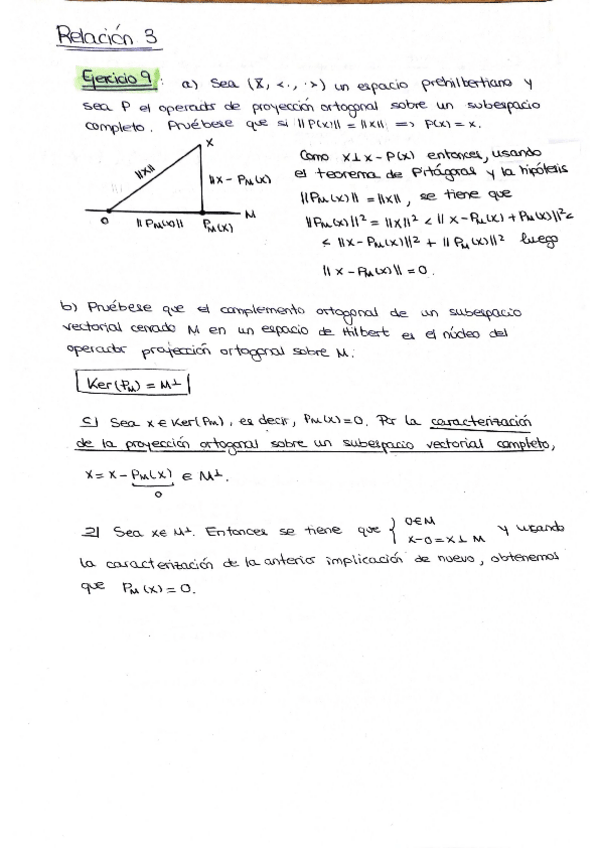 Relación 3
Ejercicio 9: a) Sea (X, <·, ·>) un espacio prehilbertiano y
sea P el operador de proyección ortogonal sobre un subespacio
completo. Pruébese que si ||P(x)|| = ||x|| => P(x) = x.
x
||x||
||x - PM(x)
0
||PM(x)||
PM(x)
M
Como x⊥x-P(x) entonces, usando
el teorema de Pitágoras y la hipótesis
||PM(x)|| = ||x||, se tiene que
||PM(x)||² = ||x||² < || x-PM(x) + PM(x)||² <
< ||x-PM(x)||² + ||PM(x)||² luego
||x-PM(x)|| = 0.
b) Pruébese que el complemento ortogonal de un subespacio
vectorial cerrado M en un espacio de Hilbert es el núcleo del
operador proyección ortogonal sobre M.
Ker(PM) = M⊥
⊆| Sea x ∈ Ker(PM), es decir, PM(x)=0. Por la caracterización
de la proyección ortogonal sobre un subespacio vectorial completo,
x = x - PM(x) ∈ M⊥.
0
⊇| Sea x∈ M⊥. Entonces se tiene que { 0∈M
x-0=x⊥ M y usando
la caracterización de la anterior implicación de nuevo, obtenemos
que PM(x) = 0.